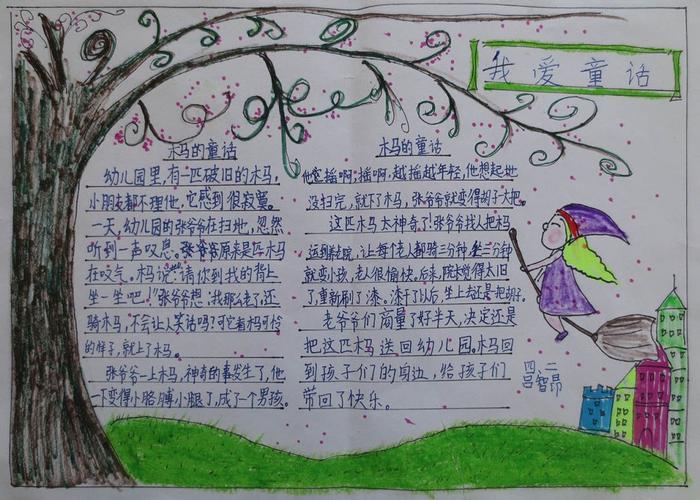 我爱童话
木马的童话
幼儿园里,有一匹破旧的木马,
小朋友都不理他,它感到很寂寞。
一天,幼儿园的张爷爷在扫地,忽然
听到一声叹息。张爷爷原来是匹木马
在叹气。木马说:"请你到我的背上
坐一坐吧!"张爷爷想:我那么老了,还
骑木马,不会让人笑话吗?可它看木马可怜
的样子,就上了木马。
张爷爷一上木马,神奇的事发生了,他
一下变得小胳膊小腿了,成了个男孩。
木马的童话
他摇啊,摇啊,越摇越年轻,他想起地
没扫完,就下了木马,张爷爷就变得胡子大把。
这匹木马太神奇了!张爷爷找人把木马
运到养老院,让每个老人都骑三分钟,坐三分钟
就变小孩,老人很愉快。后来,院长觉得太旧
了,重新刷了漆。漆干以后,坐上去还是把胡子。
老爷爷们商量了好半天,决定还是
把这匹木马送回幼儿园。木马回
到孩子们的身边,给孩子们
带回了快乐。
四、二
吕智昂